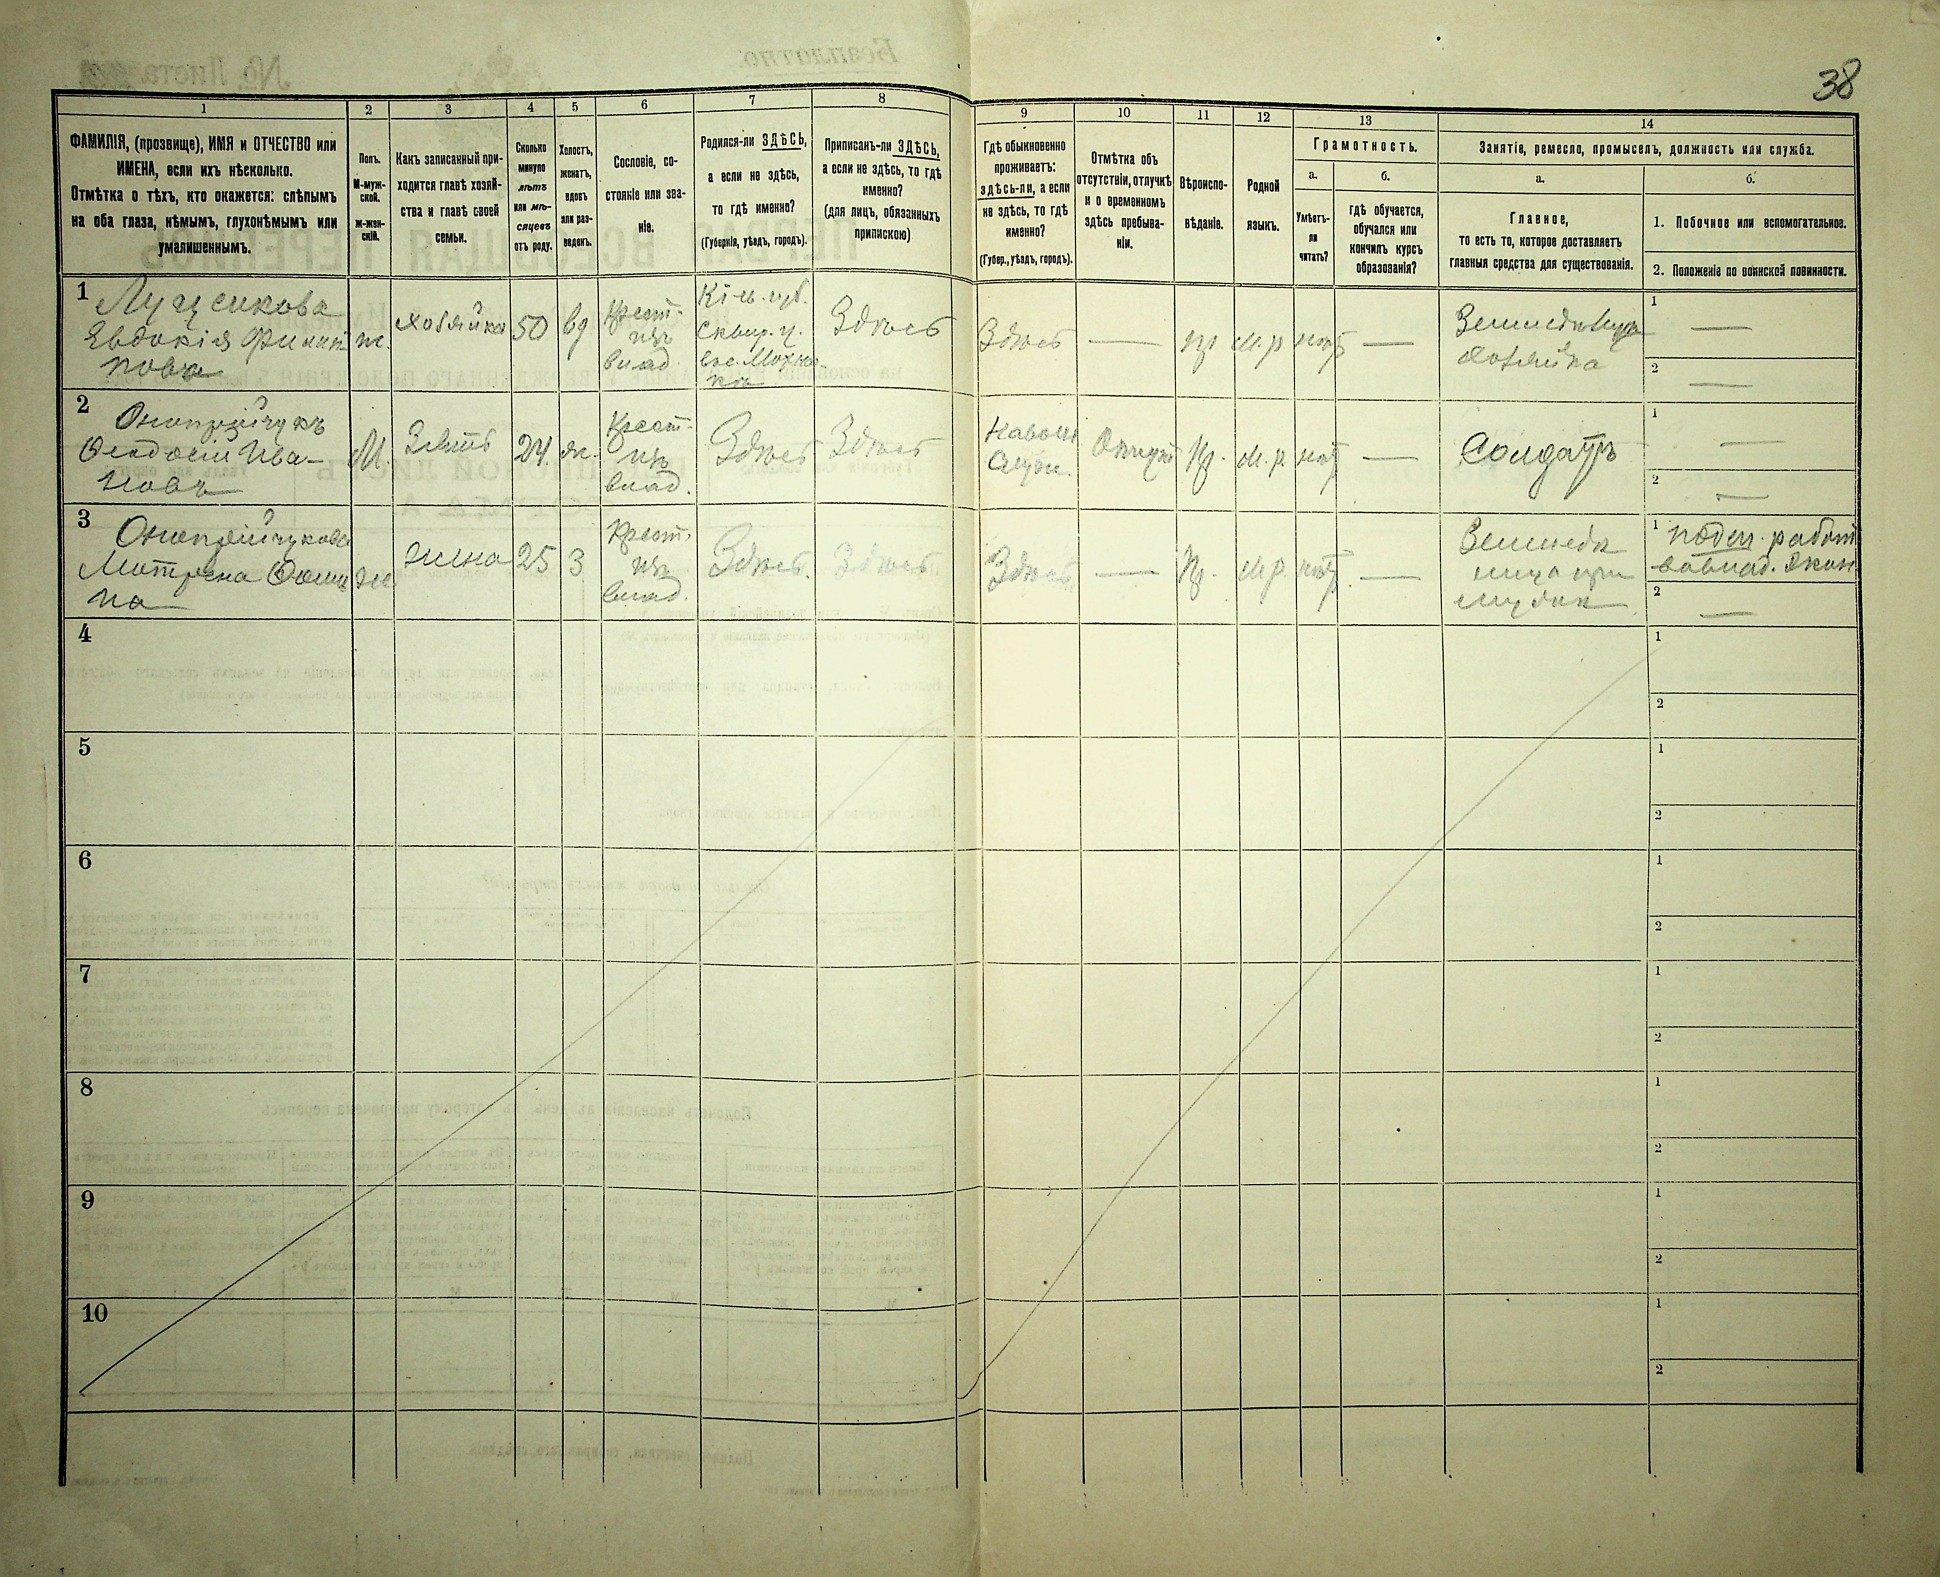 38
1 2 3 4 5 6 7 8 9 10 11 12 13 14
ФАМИЛІЯ, (прозвище), ИМЯ и ОТЧЕСТВО или
ИМЕНА, если ихъ нѣсколько.
Отмѣтка о тѣхъ, кто окажется: слѣпымъ
на оба глаза, нѣмымъ, глухонѣмымъ или
умалишеннымъ.
Полъ.
М-муж-
ской.
ж-жен-
скій.
Какъ записанный при-
ходится главѣ хозяй-
ства и главѣ своей
семьи.
Сколько
минуло
лѣтъ
или мѣ-
сяцевъ
отъ роду.
Холостъ,
женатъ,
вдовъ
или раз-
веденъ.
Сословіе, со-
стояніе или зва-
ніе.
Родился-ли ЗДѢСЬ,
а если не здѣсь,
то гдѣ именно?
(Губернія, уѣздъ, городъ).
Приписанъ-ли ЗДѢСЬ,
а если не здѣсь, то гдѣ
именно?
(для лицъ, обязанныхъ
припискою)
Гдѣ обыкновенно
проживаетъ:
здѣсь-ли, а если
не здѣсь, то гдѣ
именно?
(Губер., уѣздъ, городъ).
Отмѣтка объ
отсутствіи, отлучкѣ
и о временномъ
здѣсь пребыва-
ніи.
Вѣроиспо-
вѣданіе.
Родной
языкъ.
Грамотность.
а.
Умѣетъ-
ли
читать?
б.
гдѣ обучается,
обучался или
кончилъ курсъ
образованія?
Занятіе, ремесло, промыселъ, должность или служба.
а.
Главное,
то есть то, которое доставляетъ
главныя средства для существованія.
б.
1. Побочное или вспомогательное.
2. Положеніе по воинской повинности.
1
Евдокія Филип
пова
ж.
хозяйка
50
вд
Крест.
изъ
влад
Кіев. губ.
Сквир. у.
Здѣсь
Здѣсь
—
пр
м.р
нѣт
—
хозяйка
1
—
2
—
2
Онопрійчукъ
Ѳеодосій Ива-
новъ
М.
Зять
24
жн.
Крест.
изъ
влад.
Здѣсь
Здѣсь
Пр.
м.р.
нѣт
—
Солдатъ
1
—
2
—
3
Онопрійчукова
Матрена Ѳоми
на
жена
25
З
Крест.
изъ
влад.
Здѣсь.
Здѣсь
Здѣсь
—
Пр.
м.р.
нѣт
—
1 поден. работ
2
—
4
1
2
5
1
2
6
1
2
7
1
2
8
1
2
9
1
2
10
1
2